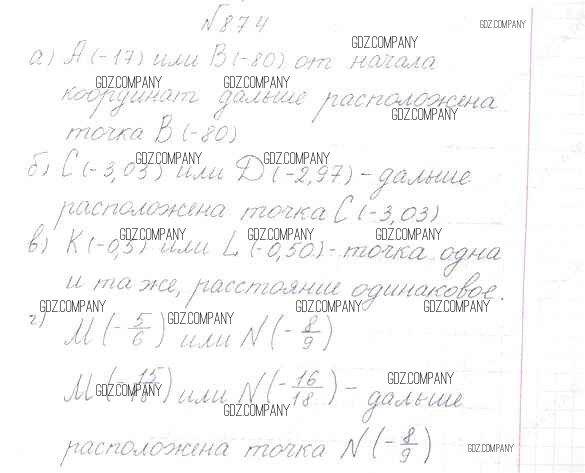 №874
GDZ.COMPANY
GDZ.COMPANY
а) A(-17) или B(-80) от начала
GDZ.COMPANY GDZ.COMPANY
координат дальше расположена
GDZ.COMPANY
точка B(-80)
GDZ.COMPANY GDZ.COMPANY
б) C(-3,03) или D(-2,97) - дальше
расположена точка C(-3,03)
GDZ.COMPANY GDZ.COMPANY GDZ.COMPANY
в) K(-0,5) или L(-0,50) - точка одна
и та же, расстояние одинаковое.
GDZ.COMPANY GDZ.COMPANY GDZ.COMPANY GDZ.COMPANY
г) M(-5/6) или N(-8/9)
GDZ.COMPANY GDZ.COMPANY
M(-15/18) или N(-16/18) - дальше
GDZ.COMPANY
расположена точка N(-8/9)
GDZ.COMPANY